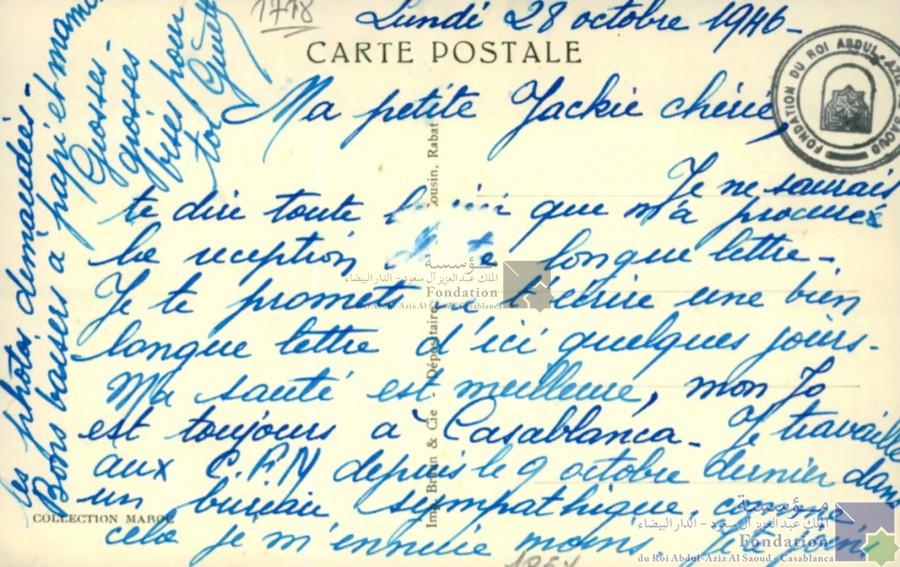 1718
Lundi 28 octobre 1946-
CARTE POSTALE
Ma petite Jackie chérie,
Je ne saurais
te dire toute que m'a procuré
la reception longue lettre-
Je te promets t'écrire une bien
longue lettre d'ici quelques jours-
Ma santé est meilleure, mon Jo
est toujours à Casablanca- Je travaille
aux C.F.N depuis le 9 octobre dernier dans
un bureau sympathique, comme
cela je m'ennuie moins. Je te joins
les photos demandées-
Bons baisers à papi et mami
Grosses
grosses
bises pour
toi
COLLECTION MAROC
Imp. Braun & Cie - Dépositaire Cousin, Rabat
FONDATION DU ROI ABDUL-AZIZ AL SAOUD
مؤسسة
الملك عبد العزيز آل سعود - الدار البيضاء
Fondation
du Roi Abdul-Aziz Al Saoud - Casablanca
مؤسسة
الملك عبد العزيز آل سعود - الدار البيضاء
Fondation
du Roi Abdul-Aziz Al Saoud - Casablanca